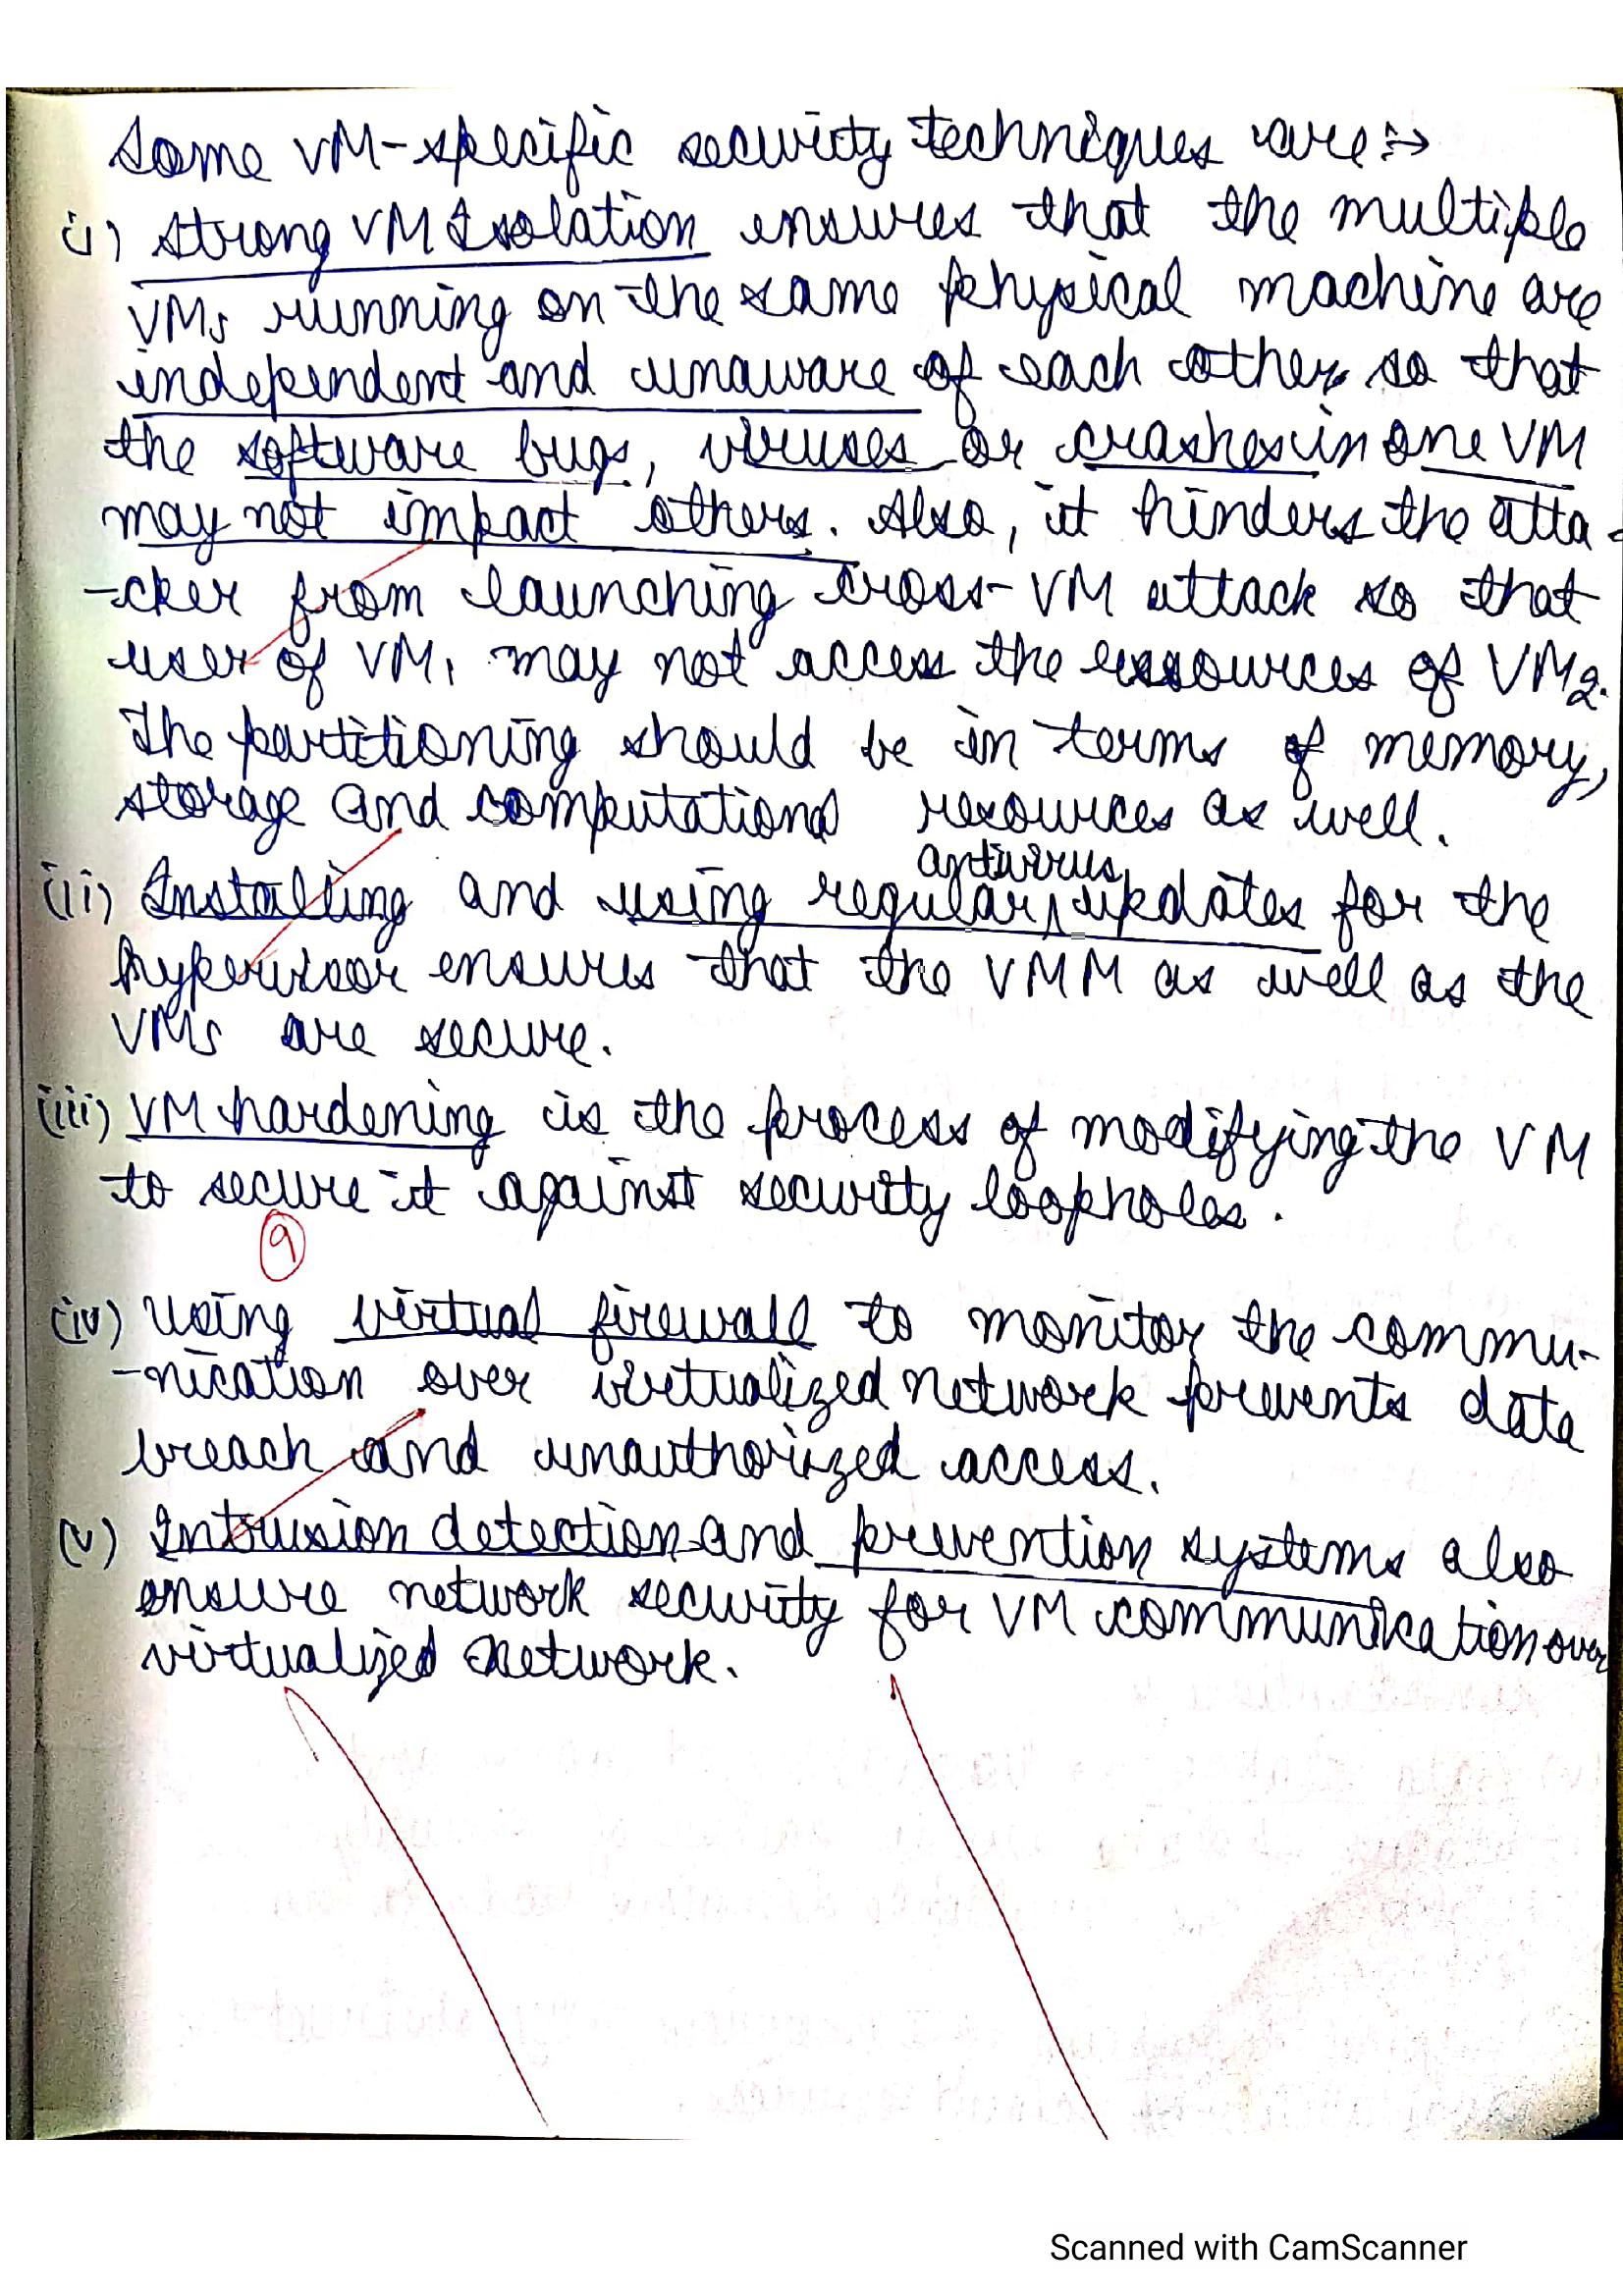 Some VM-specific security techniques are :→
(i) Strong VM Isolation ensures that the multiple
VMs running on the same physical machine are
independent and unaware of each other so that
the software bugs, viruses or crashes in one VM
may not impact others. Also, it hinders the atta-
-cker from launching cross-VM attack so that
user of VM1 may not access the resources of VM2.
The partitioning should be in terms of memory,
storage and computational resources as well.
antivirus
(ii) Installing and using regular updates for the
hypervisor ensures that the VMM as well as the
VMs are secure.
(iii) VM hardening is the process of modifying the VM
to secure it against security loopholes.
9
(iv) Using virtual firewall to monitor the commu-
-nication over virtualized network prevents data
breach and unauthorized access.
(v) Intrusion detection and prevention systems also
ensure network security for VM communication over
virtualized network.
Scanned with CamScanner